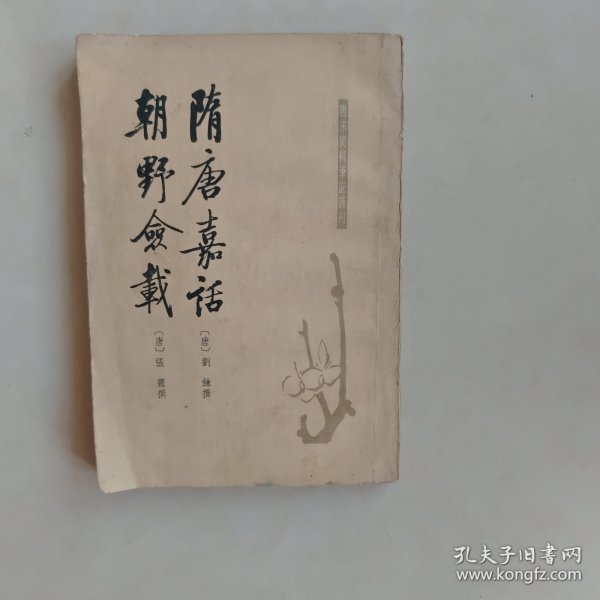 唐宋史料筆記叢刊
隋唐嘉話
〔唐〕劉餗撰
朝野僉載
〔唐〕張鷟撰
孔夫子旧书网
www.kongfz.com